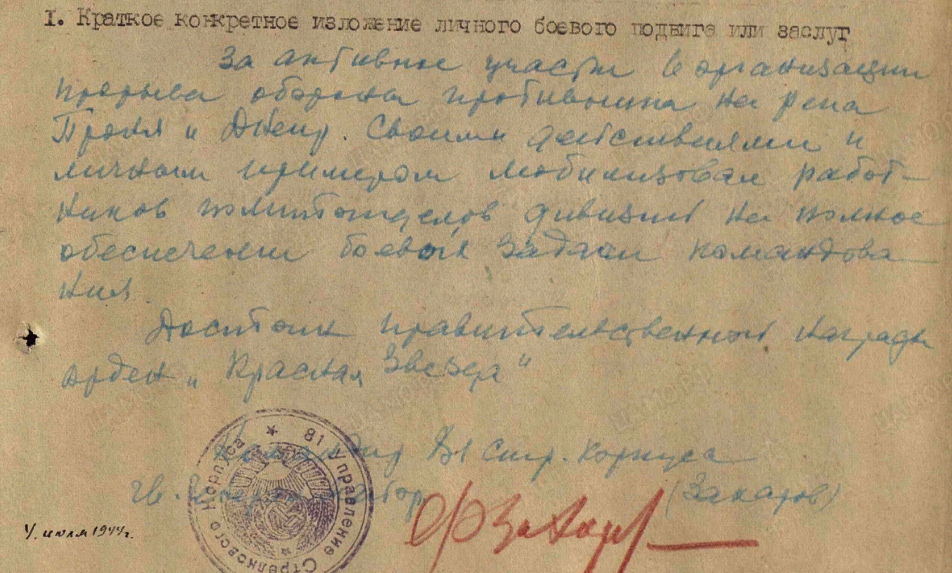 I. Краткое конкретное изложение личного боевого подвига или заслуг
За активное участи в организации
прорыва обороны противника на река
Проня и Днепр. Своими действиями и
личным примером мобилизовал работ-
ников политотделов дивизий на полное
обеспечени боевых задач командова-
ния.
Достоин правительственной награды
орден „Красная Звезда"
Командир 81 Стр. корпуса
Гв. Генерал-Майор (Захаров)
81 Управление Стрелкового Корпуса
4 июля 1944г.